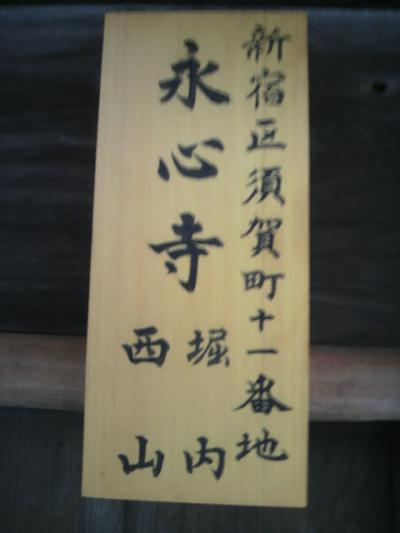 新宿区須賀町十一番地
永心寺
堀内
西山